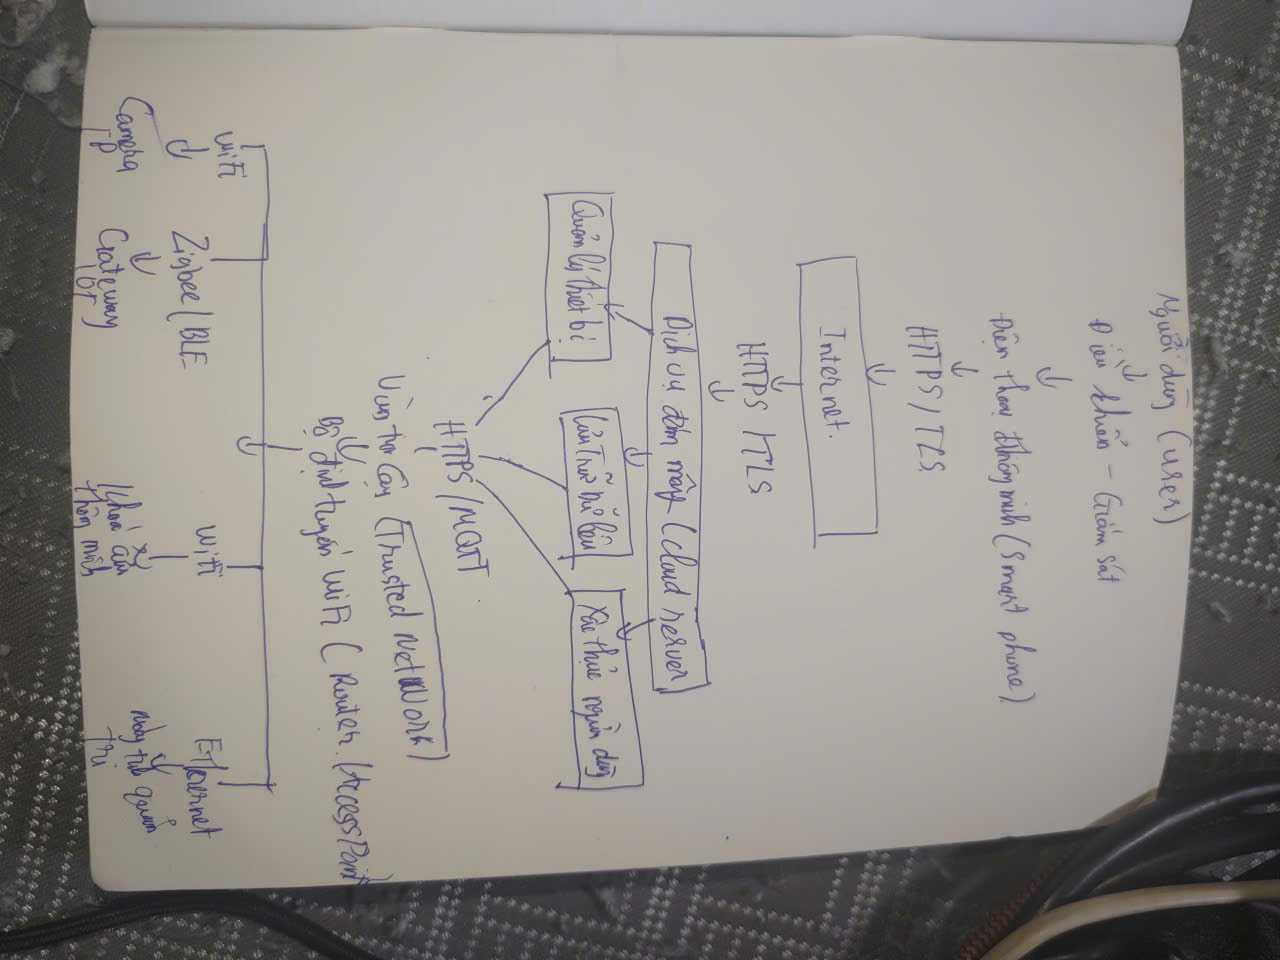 Người dùng (User)
Điều khiển - Giám sát
Điện thoại thông minh (Smart phone)
HTTPS/TLS
Internet.
HTTPS/TLS
Dịch vụ đám mây (cloud server)
Quản lý thiết bị
Lưu trữ dữ liệu
Xác thực người dùng
HTTPS/MQTT
Vùng tin cậy (Trusted Network)
Bộ định tuyến WiFi (Router/Access Point
WiFi
Zigbee/BLE
WiFi
Ethernet
Camera
IP
Gateway
IoT
Khoá cửa
thông minh
máy tính quản
trị